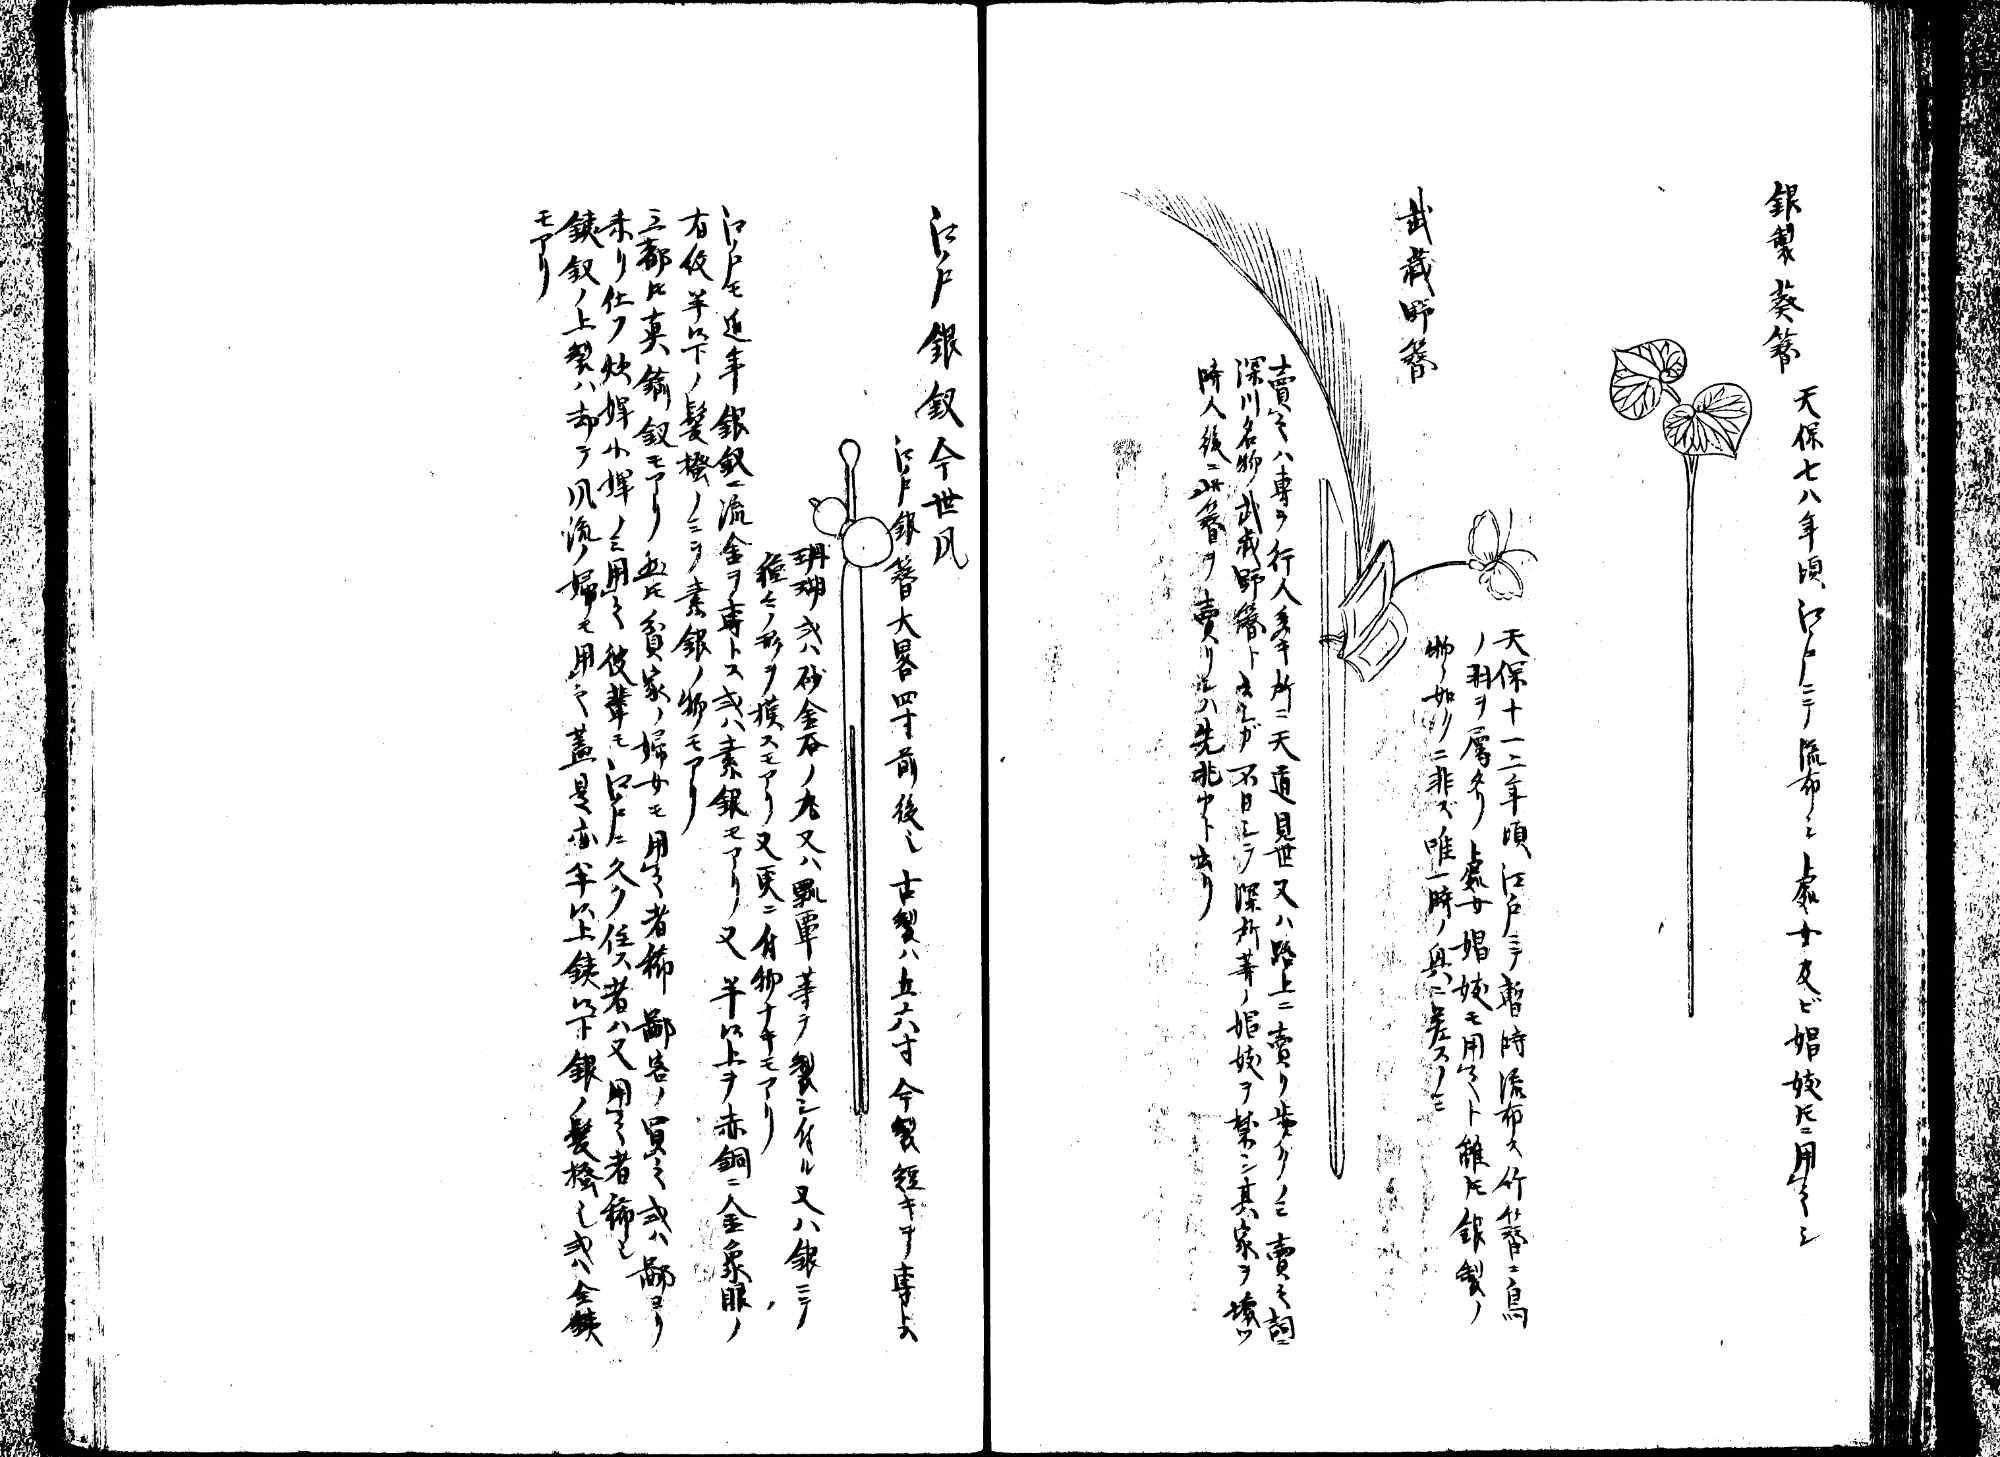 銀製葵簪
天保七八年頃江戸ニテ流布シ處女及ビ娼妓トモニ用之シ
武蔵野簪
天保十一二年頃江戸ニテ暫時流布ス竹簪ニ鳥
ノ羽ヲ属タリ處女娼妓モ用之ト雖トモ銀製ノ
物ノ如クニ非ズ唯一時ノ興ニ差スノミ
賣之ハ専ラ行人多キ所ニ天道見世又ハ路上ニ賣リ歩クノミ賣之詞ニ
深川名物武蔵野簪ト云シガ不日シテ深川等ノ娼妓ヲ禁シ其家ヲ壊ツ
時人後ニ此簪ヲ賣リシハ先兆也ト云リ
江戸銀釵今世風
江戸銀簪大畧四寸前後也古製ハ五六寸今製短キヲ専トス
珊瑚或ハ砂金石ノ丸又ハ瓢覃等ヲ製シ付ル又ハ銀ニテ
種々ノ形ヲ模スモアリ又更ニ付物ナキモアリ
江戸モ近年銀釵ニ流金ヲ専トス或ハ素銀モアリ又半以上ヲ赤銅ニ金象眼ノ
者佼半以下ノ髪掻ノミヲ素銀ノ物モアリ
三都トモ真鍮釵モアリ然トモ貧家ノ婦女モ用之者稀鄙客ノ買之或ハ鄙ヨリ
来リ仕フ炊婢小婢ノミ用之彼輩モ江戸ニ久ク住ス者ハ又用之者稀也
銕釵ノ上製ハ却テ風流ノ婦モ用之蓋是亦半以上銕以下銀ノ髪掻也或ハ全銕
モアリ